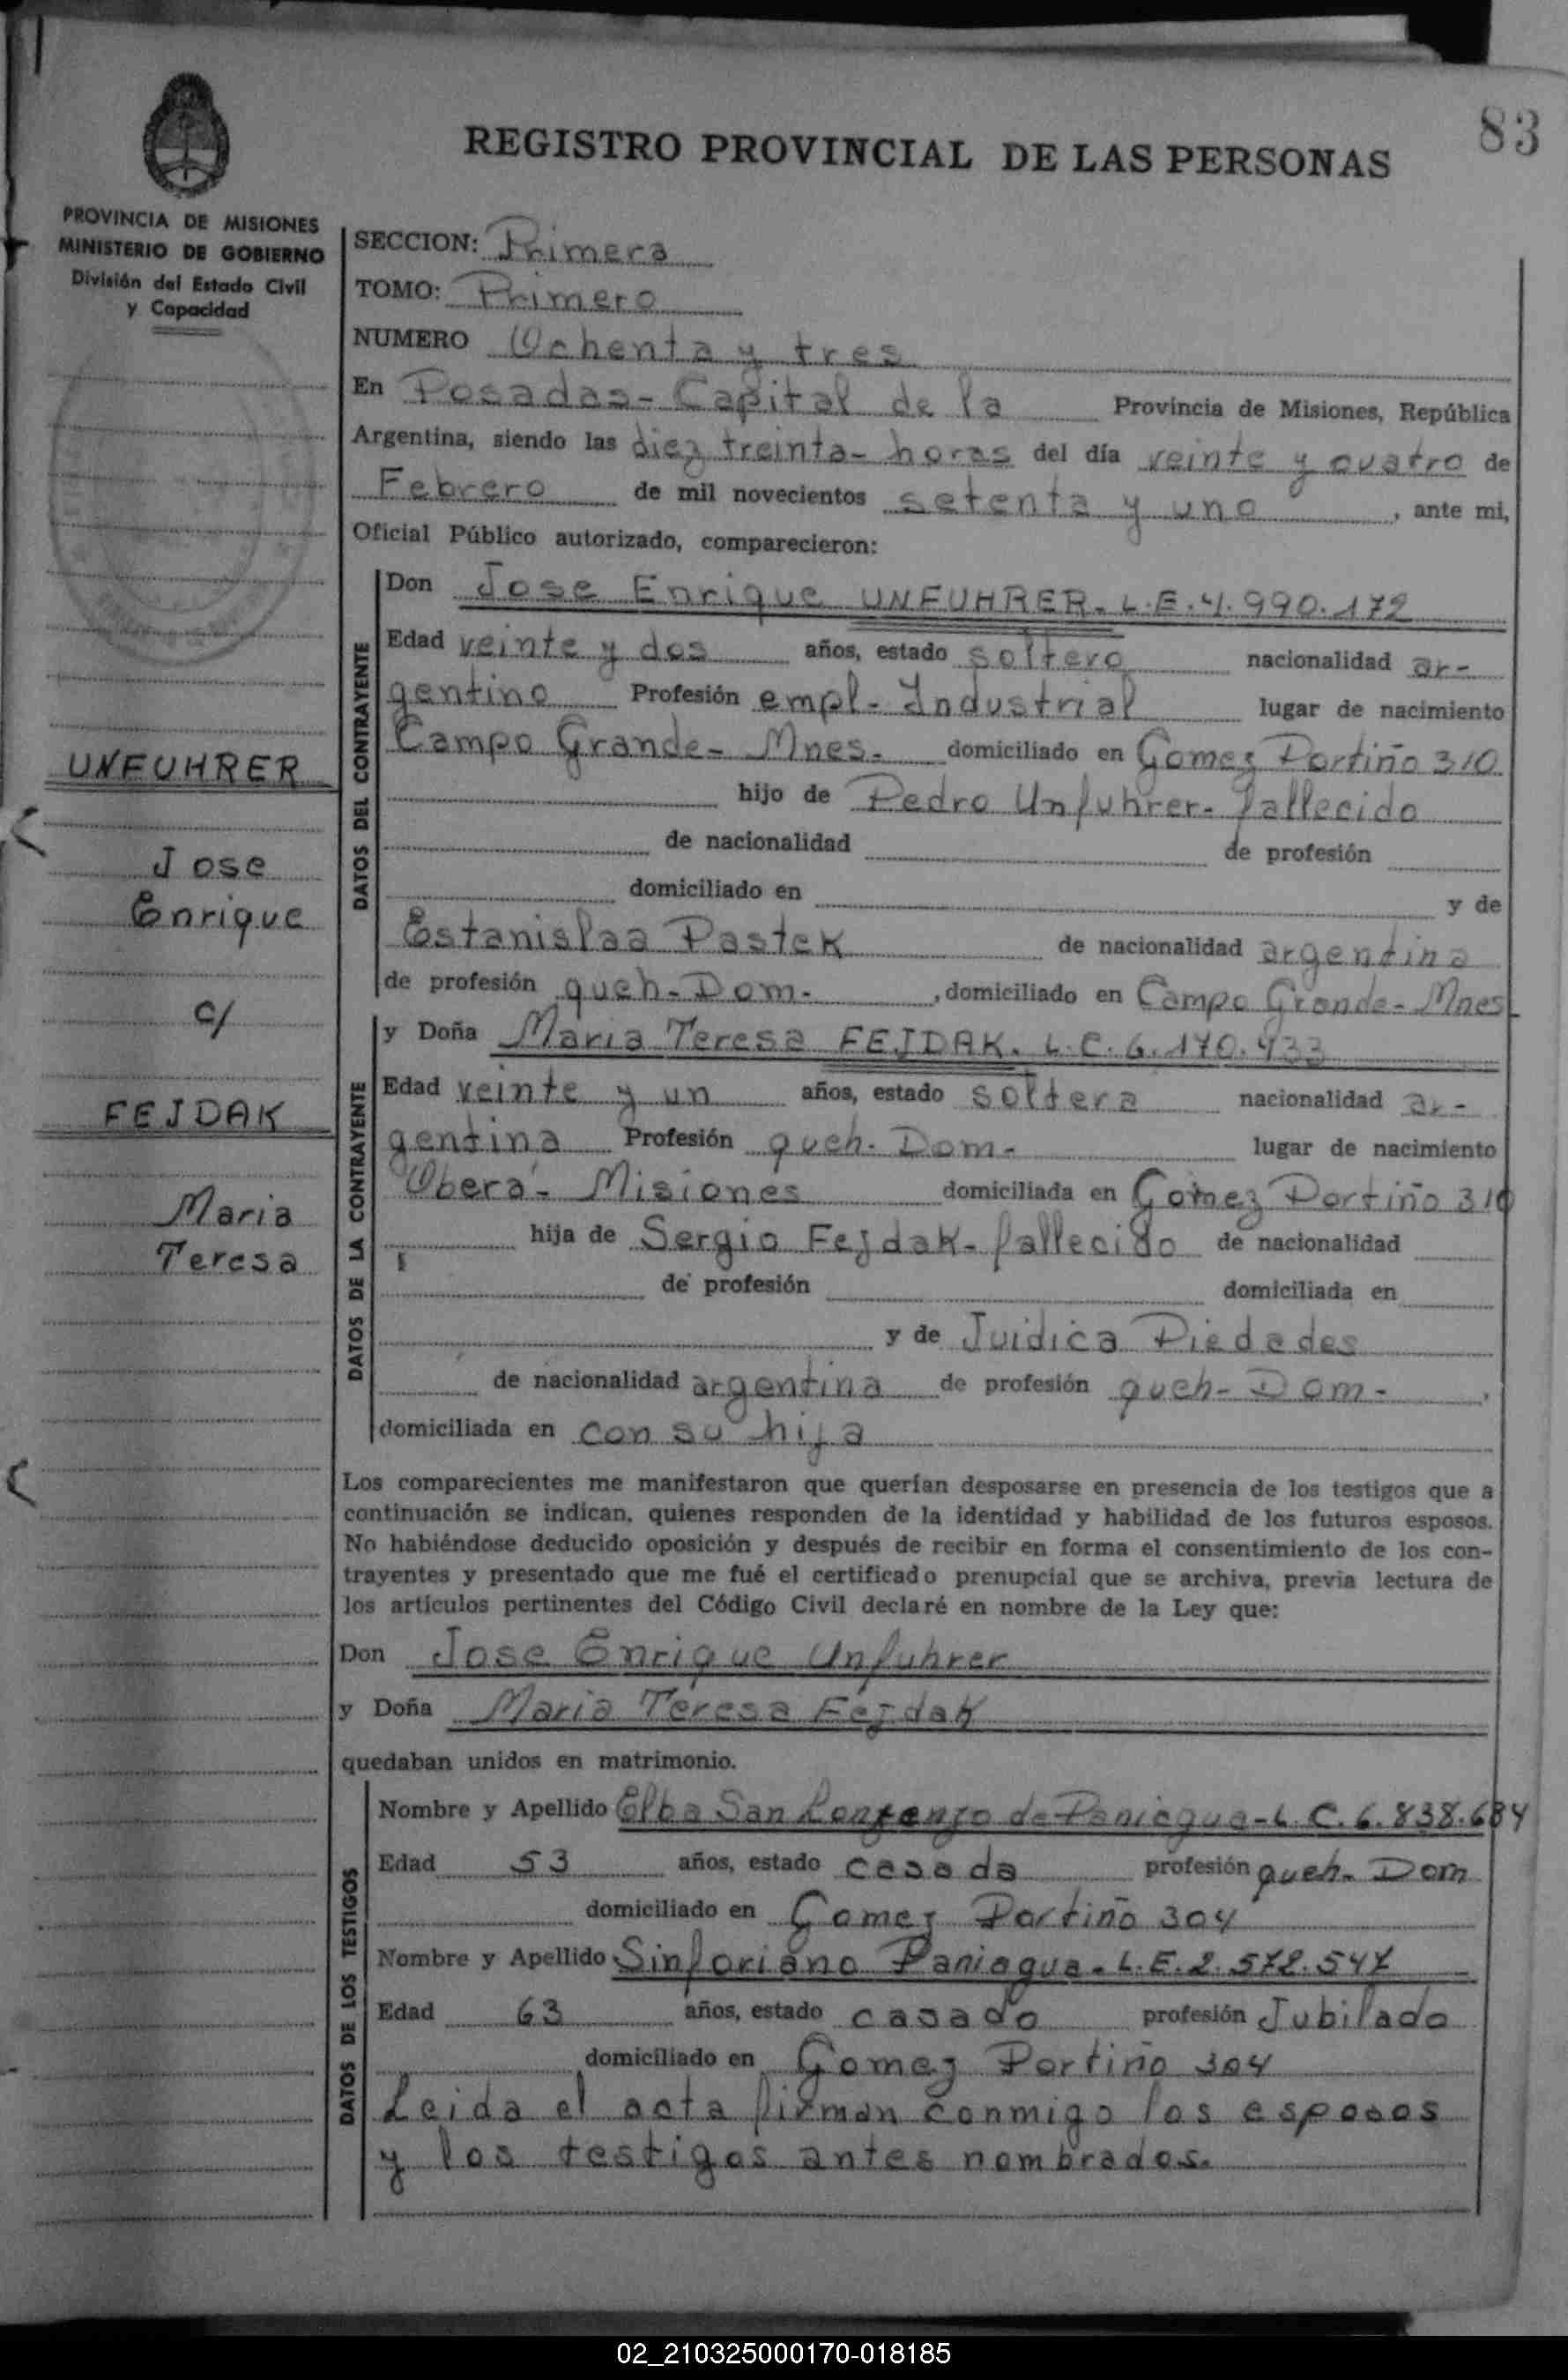 83
REGISTRO PROVINCIAL DE LAS PERSONAS
PROVINCIA DE MISIONES
MINISTERIO DE GOBIERNO
División del Estado Civil
y Capacidad
SECCION: Primera
TOMO: Primero
NUMERO Ochenta y tres
En Posadas - Capital de la Provincia de Misiones, República
Argentina, siendo las diez treinta - horas del día veinte y cuatro de
Febrero de mil novecientos setenta y uno, ante mi,
Oficial Público autorizado, comparecieron:
DATOS DEL CONTRAYENTE
Don Jose Enrique UNFUHRER. L.E. 4.990.172
Edad veinte y dos años, estado soltero nacionalidad ar-
gentino Profesión empl - Industrial lugar de nacimiento
Campo Grande - Mnes. domiciliado en Gomez Portiño 310
hijo de Pedro Unfuhrer - fallecido
de nacionalidad de profesión
domiciliado en y de
Estanislaa Pastek de nacionalidad argentina
de profesión queh - Dom -, domiciliado en Campo Grande - Mnes
UNFUHRER
Jose
Enrique
c/
FEJDAK
Maria
Teresa
DATOS DE LA CONTRAYENTE
y Doña Maria Teresa FEJDAK. L.C. 6.170.433
Edad veinte y un años, estado soltera nacionalidad ar-
gentina Profesión queh. Dom - lugar de nacimiento
Oberá - Misiones domiciliada en Gomez Portiño 310
hija de Sergio Fejdak - fallecido de nacionalidad
de profesión domiciliada en
y de Juidica Piedades
de nacionalidad argentina de profesión queh - Dom -,
domiciliada en con su hija
Los comparecientes me manifestaron que querían desposarse en presencia de los testigos que a
continuación se indican, quienes responden de la identidad y habilidad de los futuros esposos.
No habiéndose deducido oposición y después de recibir en forma el consentimiento de los con-
trayentes y presentado que me fué el certificado prenupcial que se archiva, previa lectura de
los artículos pertinentes del Código Civil declaré en nombre de la Ley que:
Don Jose Enrique Unfuhrer
y Doña Maria Teresa Fejdak
quedaban unidos en matrimonio.
DATOS DE LOS TESTIGOS
Nombre y Apellido Elba San Lorenzo de Paniagua - L.C. 6.838.684
Edad 53 años, estado casada profesión queh - Dom
domiciliado en Gomez Portiño 304
Nombre y Apellido Sinforiano Paniagua - L.E. 2.572.547
Edad 63 años, estado casado profesión Jubilado
domiciliado en Gomez Portiño 304
Leida el acta firman conmigo los esposos
y los testigos antes nombrados.
02_210325000170-018185